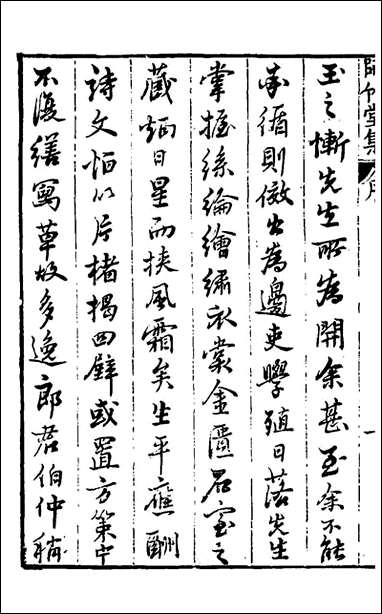 竹堂集 序
玉之慚先生所為開余甚至余不能
奉循則出為邊吏學殖日落先生
掌握絲綸繪繡衣裳金匱石室之
藏炳日星而挾風霜矣生平應酬
詩文恒以片楮揭四壁或置方策中
不復繕寫草故多逸郎君伯仲稍